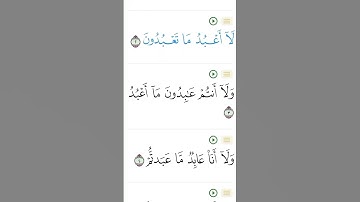 لَآ أَعْبُدُ مَا تَعْبُدُونَ ٢
وَلَآ أَنتُمْ عَٰبِدُونَ مَآ أَعْبُدُ
٣
وَلَآ أَنَا۠ عَابِدٌ مَّا عَبَدتُّمْ ٤